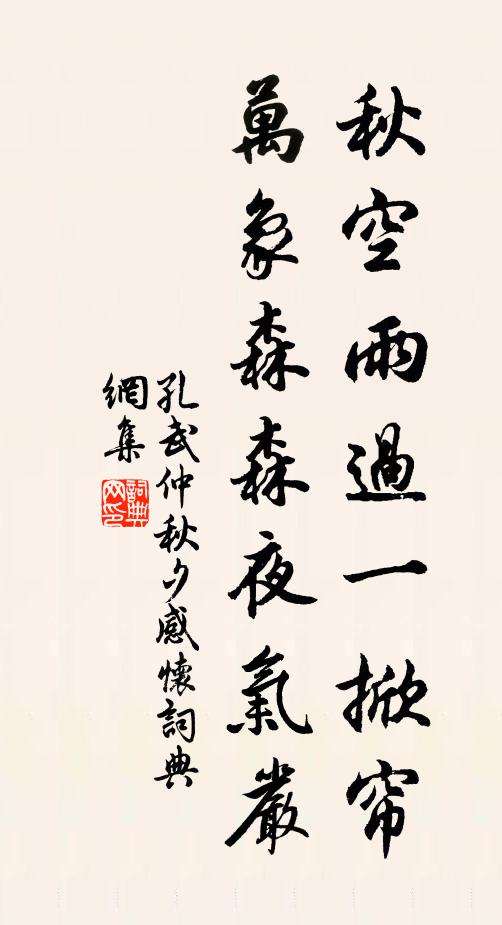 秋空雨過一掀帘
萬象森森夜氣嚴
孔武仲秋夕感懷詞典
網集
詞典
网印